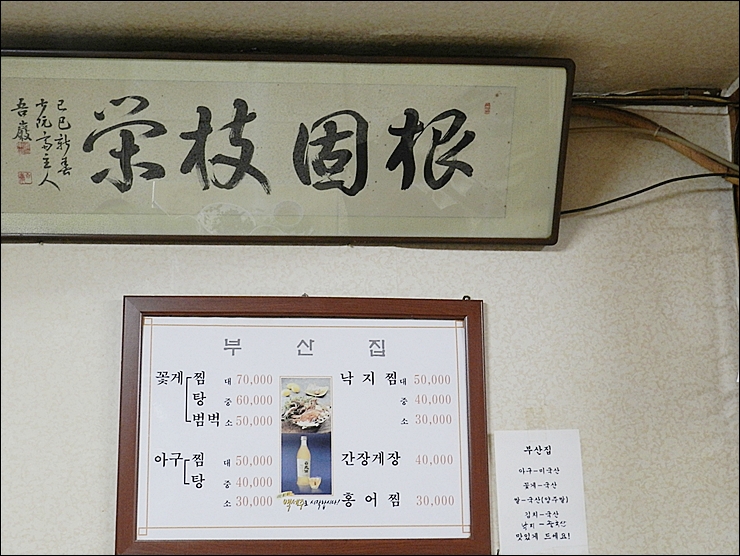 根固枝栄
己巳新春
吾巖
부산집
꽃게 찜 대 70,000
탕 중 60,000
범벅 소 50,000
아구 찜 대 50,000
탕 중 40,000
소 30,000
낙지찜 대 50,000
중 40,000
소 30,000
간장게장 40,000
홍어찜 30,000
백세주로 시작합시다!
부산집
아구-미국산
꽃게-국산
쌀-국산(양주쌀)
김치-국산
낙지-중국산
맛있게 드세요!